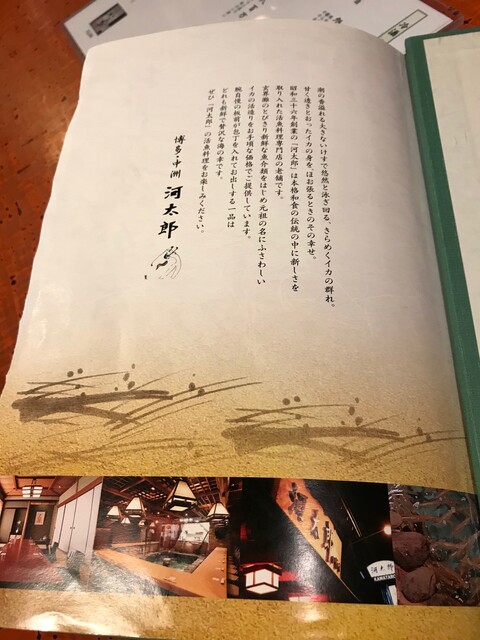 潮の香溢れる大きないけすで悠然と泳ぎ回る、きらめくイカの群れ。
甘く透きとおったイカの身を、ほお張るときのその幸せ。
昭和三十六年創業の「河太郎」は本格和食の伝統の中に新しさを
取り入れた活魚料理専門店の老舗です。
玄界灘のとびきり新鮮な魚介類をはじめ元祖の名にふさわしい
イカの活造りをお手頃な価格でご提供しています。
腕自慢の板前が包丁を入れてお出しする一品は
どれも新鮮で贅沢な海の幸です。
ぜひ「河太郎」の活魚料理をお楽しみください。
博多・中洲 河太郎
河太郎
河太郎
KAWATARO